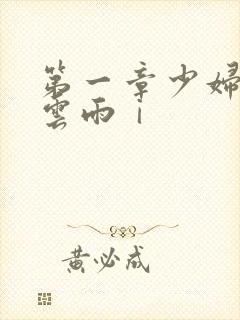 第一章少婦
雲雨｜
黄必成